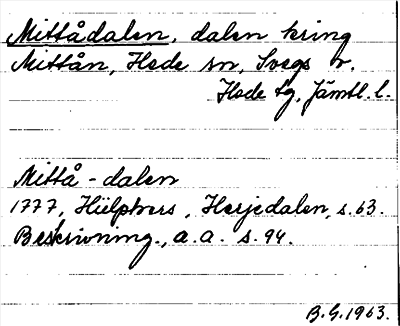 Mittådalen, dalen kring
Mittån, Hede sn, Svegs tr.
Hede tg, Jämtl. l.
Mittå-dalen
1777, Hülphers, Herjedalen, s. 63.
Beskrivning., a.a. s. 94.
B.G. 1963.